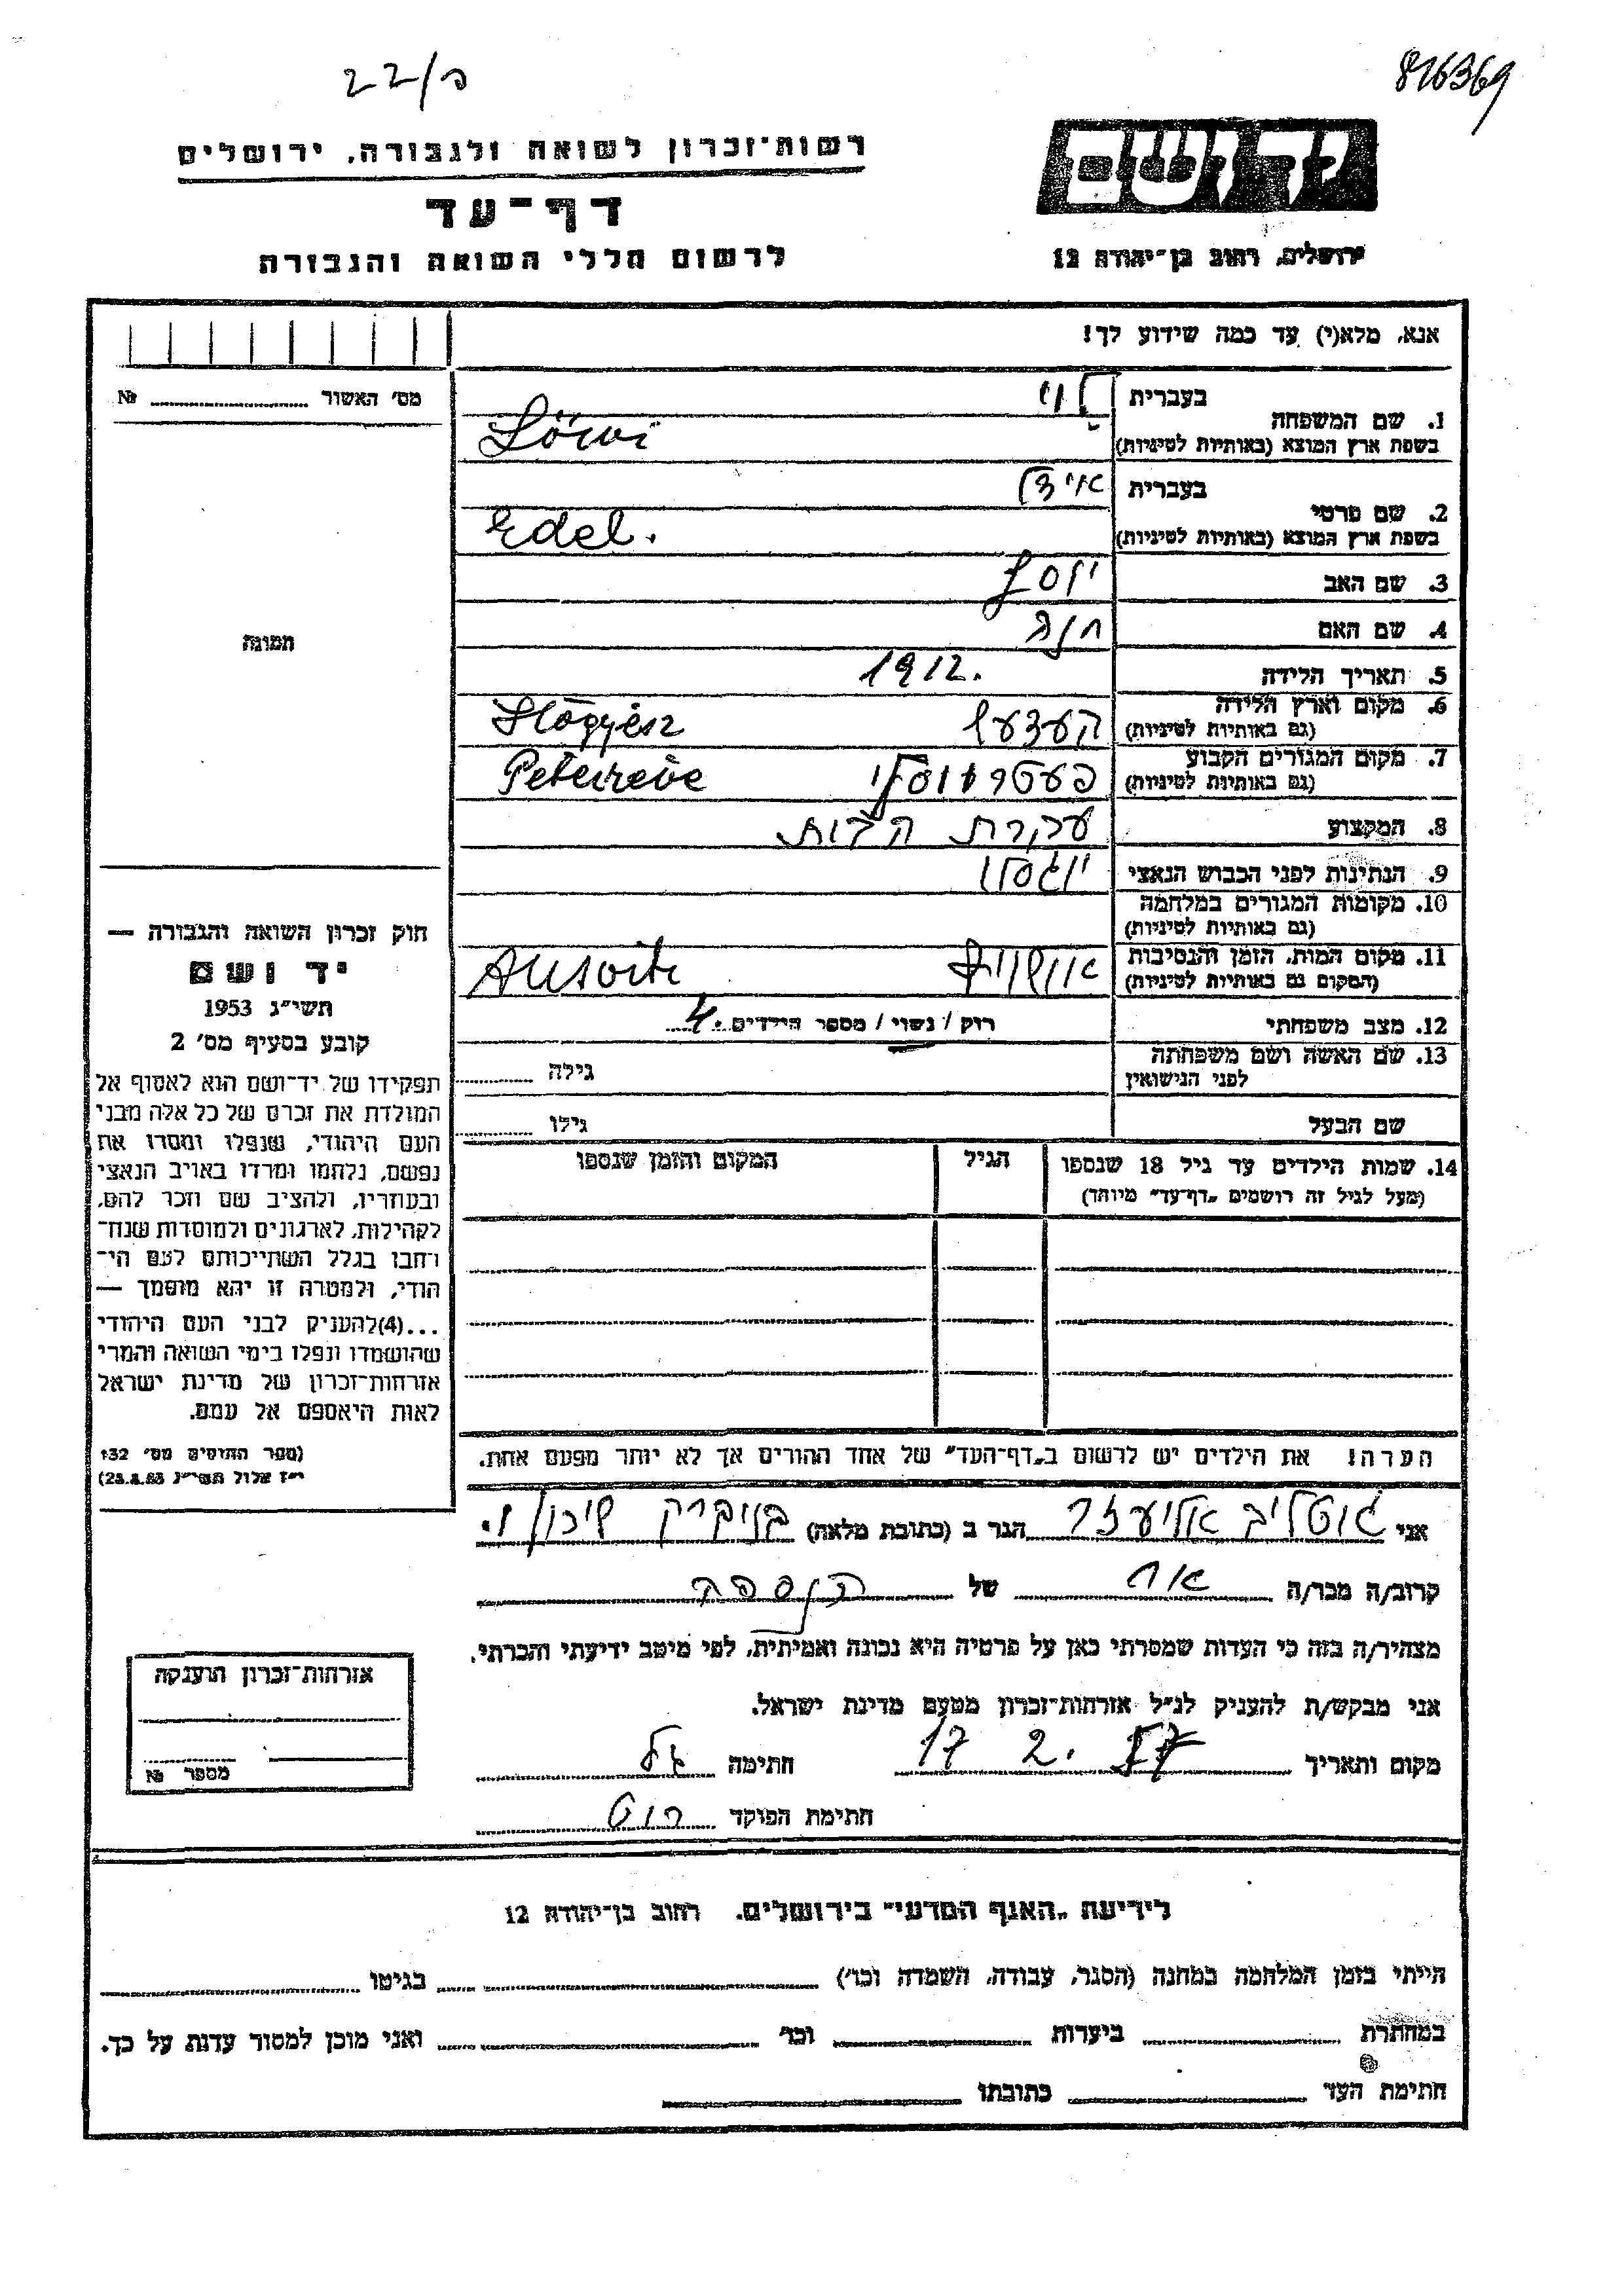 22/פ
816369
רשות־זכרון לשואה ולגבורה, ירושלים
דף־עד
לרשום חללי השואה והגבורה
יד ושם
ירושלים, רחוב בן־יהודה 12
אנא, מלא(י) עד כמה שידוע לך!
מס׳ האשור № 
תמונה
1. שם המשפחה
בעברית לוי
בשפת ארץ המוצא (באותיות לטיניות) Löwi
2. שם פרטי
בעברית אידל
בשפת ארץ המוצא (באותיות לטיניות) Edel.
3. שם האב יוסף
4. שם האם חנה
5. תאריך הלידה 1912.
6. מקום וארץ הלידה
(גם באותיות לטיניות) Högyész
7. מקום המגורים הקבוע
(גם באותיות לטיניות) Petereve
8. המקצוע עקרת הבית
9. הנתינות לפני הכבוש הנאצי יוגסלו
10. מקומות המגורים במלחמה
(גם באותיות לטיניות)
11. מקום המות, הזמן והנסיבות
(המקום גם באותיות לטיניות) אושוויץ Ausvitz
12. מצב משפחתי רוק / נשוי / מספר הילדים 4.
13. שם האשה ושם משפחתה
לפני הנישואין גילה
שם הבעל גילו
14. שמות הילדים עד גיל 18 שנספו
(מעל לגיל זה רושמים „דף־עד״ מיוחד)
הגיל
המקום והזמן שנספו
הערה: את הילדים יש לרשום ב„דף־העד״ של אחד ההורים אך לא יותר מפעם אחת.
חוק זכרון השואה והגבורה —
יד ושם
תשי״ג 1953
קובע בסעיף מס׳ 2
תפקידו של יד־ושם הוא לאסוף אל
המולדת את זכרם של כל אלה מבני
העם היהודי, שנפלו ומסרו את
נפשם, נלחמו ומרדו באויב הנאצי
ובעוזריו, ולהציב שם וזכר להם,
לקהילות, לארגונים ולמוסדות שנח־
רבו בגלל השתייכותם לעם הי־
הודי, ולמטרה זו יהא מוסמך —
...(4)להעניק לבני העם היהודי
שהושמדו ונפלו בימי השואה והמרי
אזרחות־זכרון של מדינת ישראל
לאות היאספם אל עמם.
(ספר החוקים מס׳ 132
י״ז אלול תשי״ג 28.8.53)
אני גוטליב אליעזר הגר ב (כתובת מלאה) בני ברק שיכון ו.
קרוב/ה מכר/ה אח של הנספה
מצהיר/ה בזה כי העדות שמסרתי כאן על פרטיה היא נכונה ואמיתית, לפי מיטב ידיעתי והכרתי.
אני מבקש/ת להעניק לנ״ל אזרחות־זכרון מטעם מדינת ישראל.
מקום ותאריך 17 2. 57 חתימה
חתימת הפוקד
אזרחות־זכרון הוענקה
מספר №
לידיעת „האגף המדעי״ בירושלים, רחוב בן־יהודה 12
הייתי בזמן המלחמה במחנה (הסגר, עבודה, השמדה וכו׳) בגיטו
במחתרת ביערות וכו׳ ואני מוכן למסור עדות על כך.
חתימת העד כתובתו